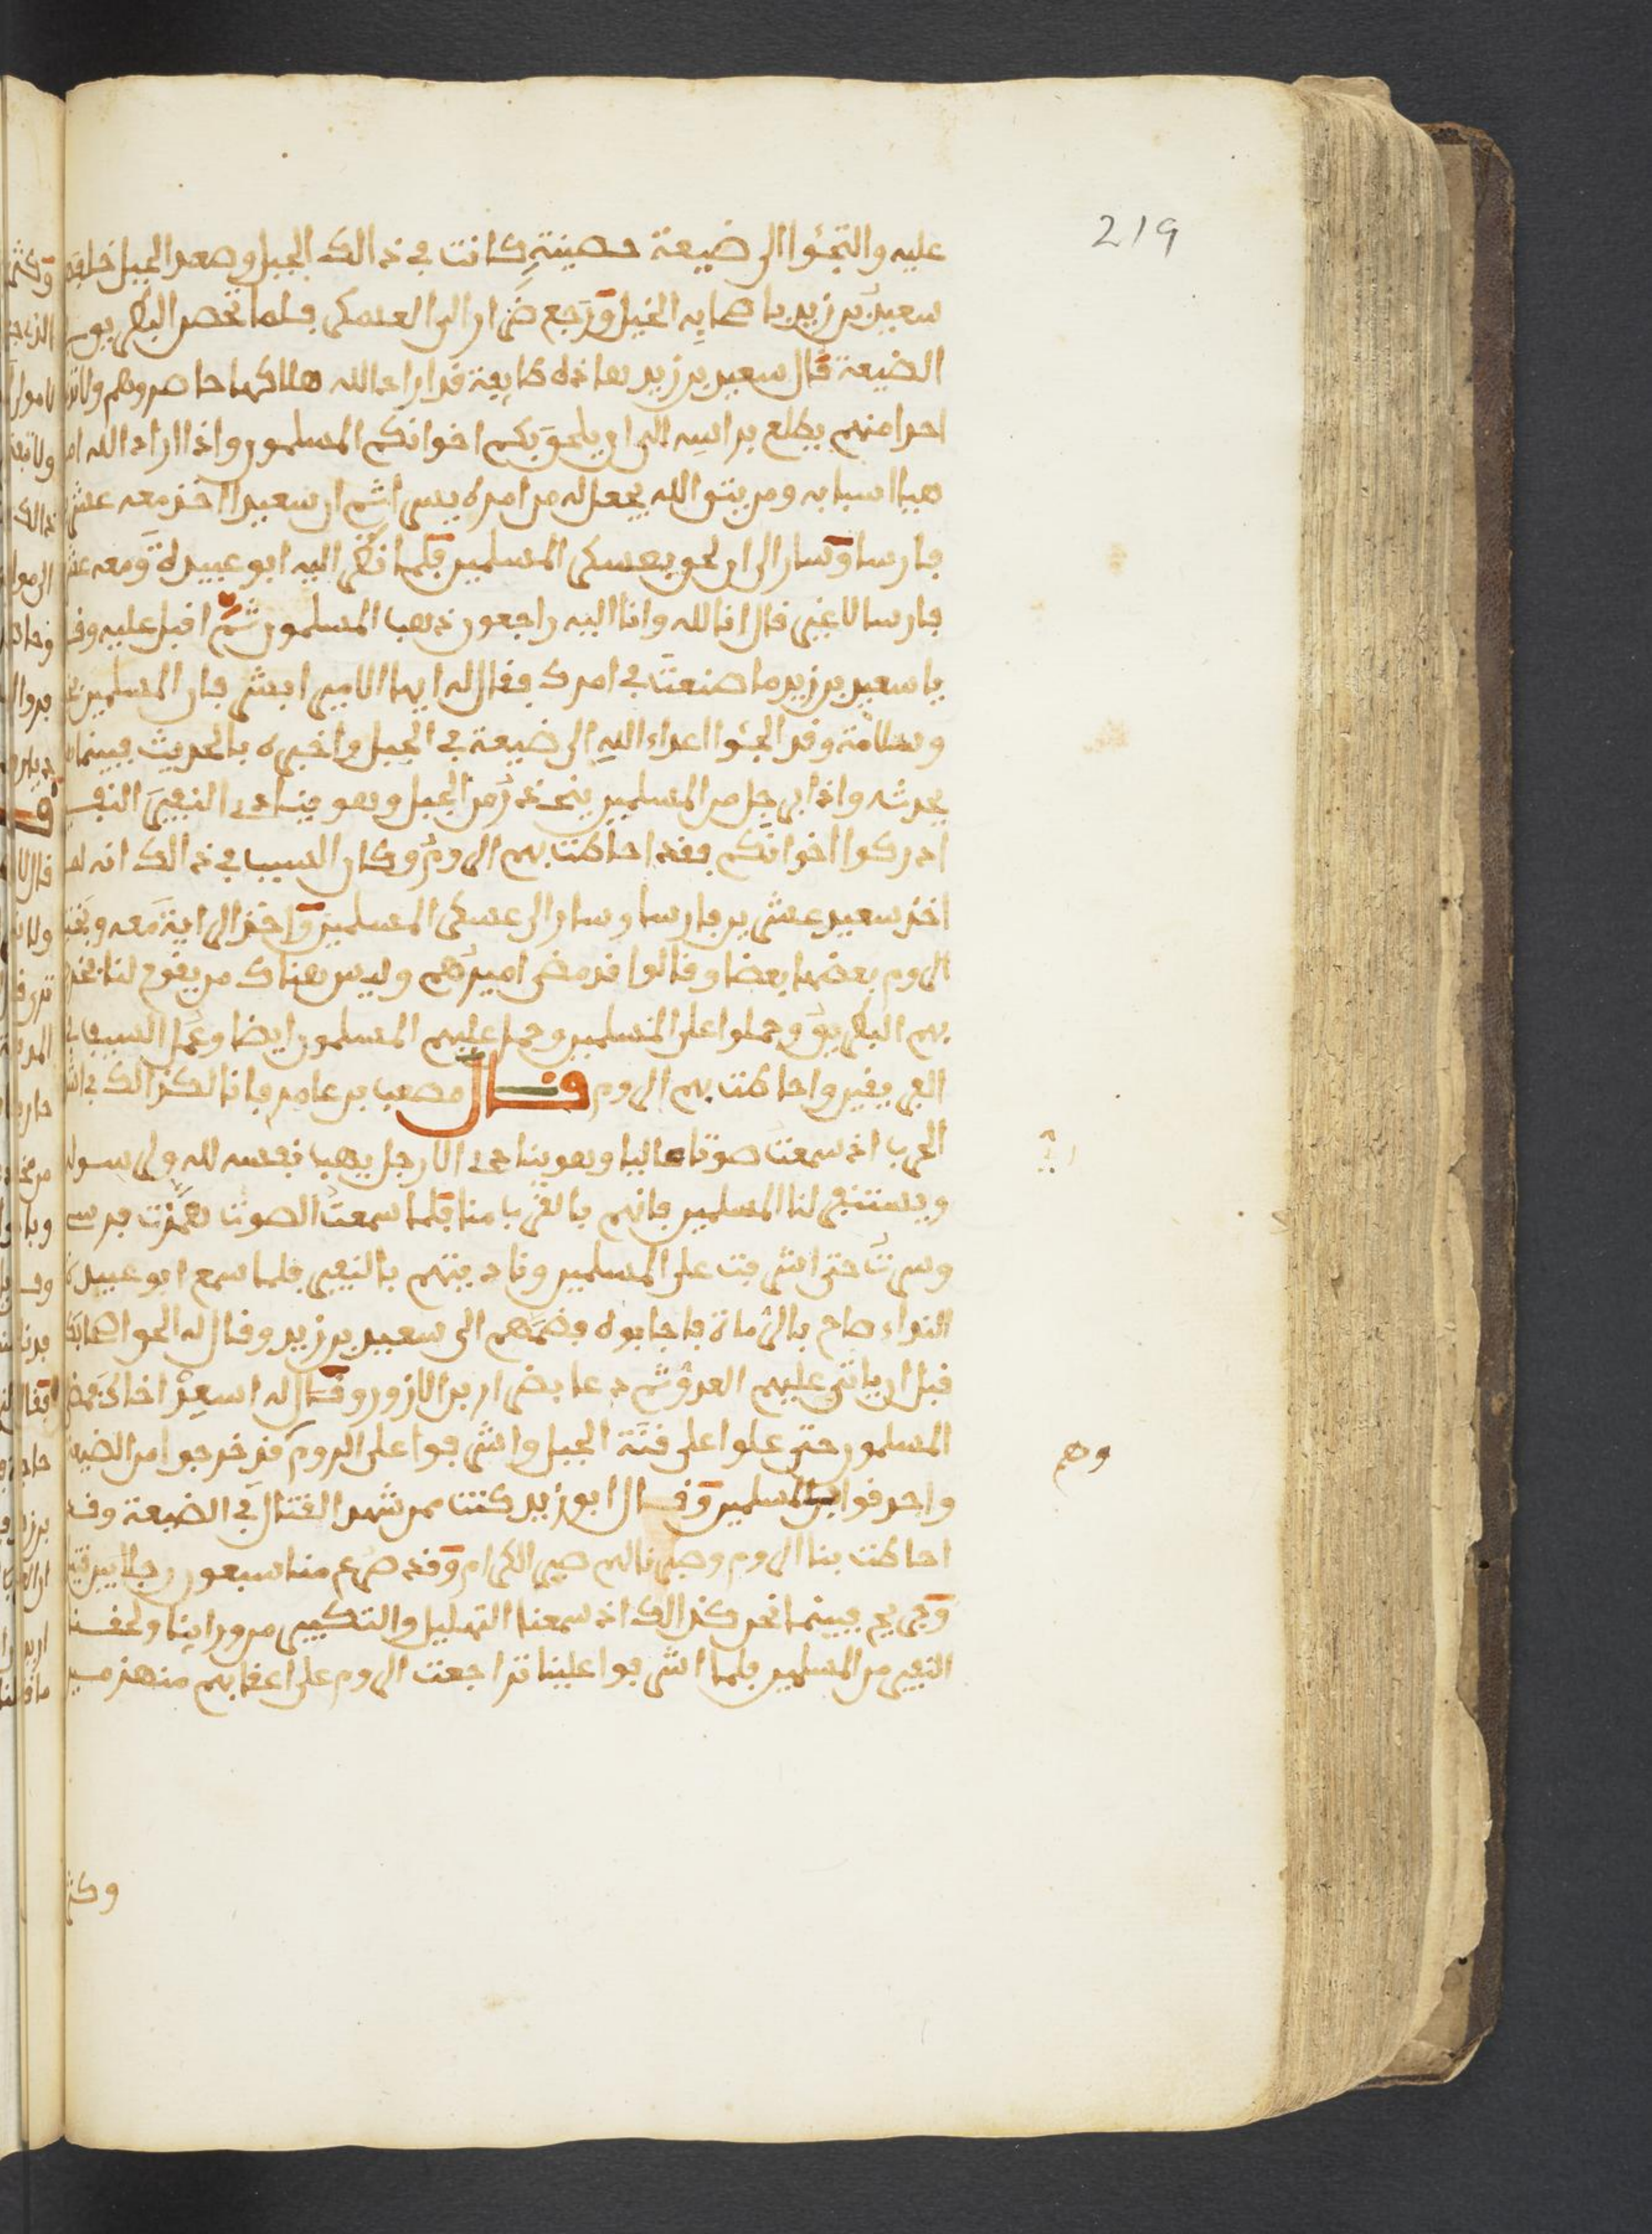 219
عليه والتجئوا الى ضيعة حصينة كانت في ذالك الجبل وصعد الجبل خلفهم
سعيد بن زيد باصحابه الخيل ورجع ضرار الى العسكر فلما تحصن البطريق
الضيعة قال سعيد بن زيد هاذه طايفة قد اراد الله هلاكها حاصروهم ولا
احدا منهم يطلع براسه الى ان يلحق بكم اخوانكم المسلمون واذا اراد الله
هيا اسبابه ومن يتق الله يجعل له من امره يسرا ثم ان سعيدا اخذ معه عشرين
فارسا وسار الى ان لحق بعسكر المسلمين فلما نظر اليه ابو عبيدة ومعه عشرين
فارسا لا غير قال انا لله وانا اليه راجعون ذهب المسلمون ثم اقبل عليه وقال
يا سعيد بن زيد ما صنعت في امرك فقال له ايها الامير ابشر فان المسلمين بخير
وسلامة وقد الجئوا اعداء الله الى ضيعة في الجبل واخبره بالحديث فبينما
يحدثه واذا برجل من المسلمين ينحدر من الجبل وهو ينادي النفير النفير
ادركوا اخوانكم فقد احاطت بهم الروم وكان السبب في ذالك انه لما
اخذ سعيد عشرين فارسا وسار الى عسكر المسلمين واخذ الراية معه
الروم بعضها بعضا وقالوا قد مضى اميرهم وليس هناك من يقوم لنا
بهم البطريق وحملوا على المسلمين وحمل عليهم المسلمون ايضا وعمل السيف في
الفريقين واحاطت بهم الروم قال مصعب بن عامر فانا لكذالك في اشد
الحرب اذ سمعت صوتا عاليا وهو ينادي الا رجل يهب نفسه لله ولرسوله
ويستنفر لنا المسلمين فانهم بالقرب منا فلما سمعت الصوت همزت فرسي
وسرت حتى اشرفت على المسلمين وناديتهم بالنفير فلما سمع ابو عبيدة
النداء صاح بالرماة فاجابوه فضمهم الى سعيد بن زيد وقال له الحق اصحابك
قبل ان ياتي عليهم العدو ثم دعا بضرار بن الازور وقال له اسعد اخاك فمضى
المسلمون حتى علوا على قنة الجبل واشرفوا على الروم قد خرجوا من الضيعة
وهم
واحدقوا بالمسلمين وقال ابو زيد كنت ممن شهد القتال في الضيعة وقد
احاطت بنا الروم وصبرنا لهم صبر الكرام وقد صرع منا سبعون رجلا بين قتيل
وجريح فبينما نحن كذالك اذ سمعنا التهليل والتكبير من ورائنا ولحقنا
النفير من المسلمين فلما اشرفوا علينا تراجعت الروم على اعقابهم منهزمين
وكثر